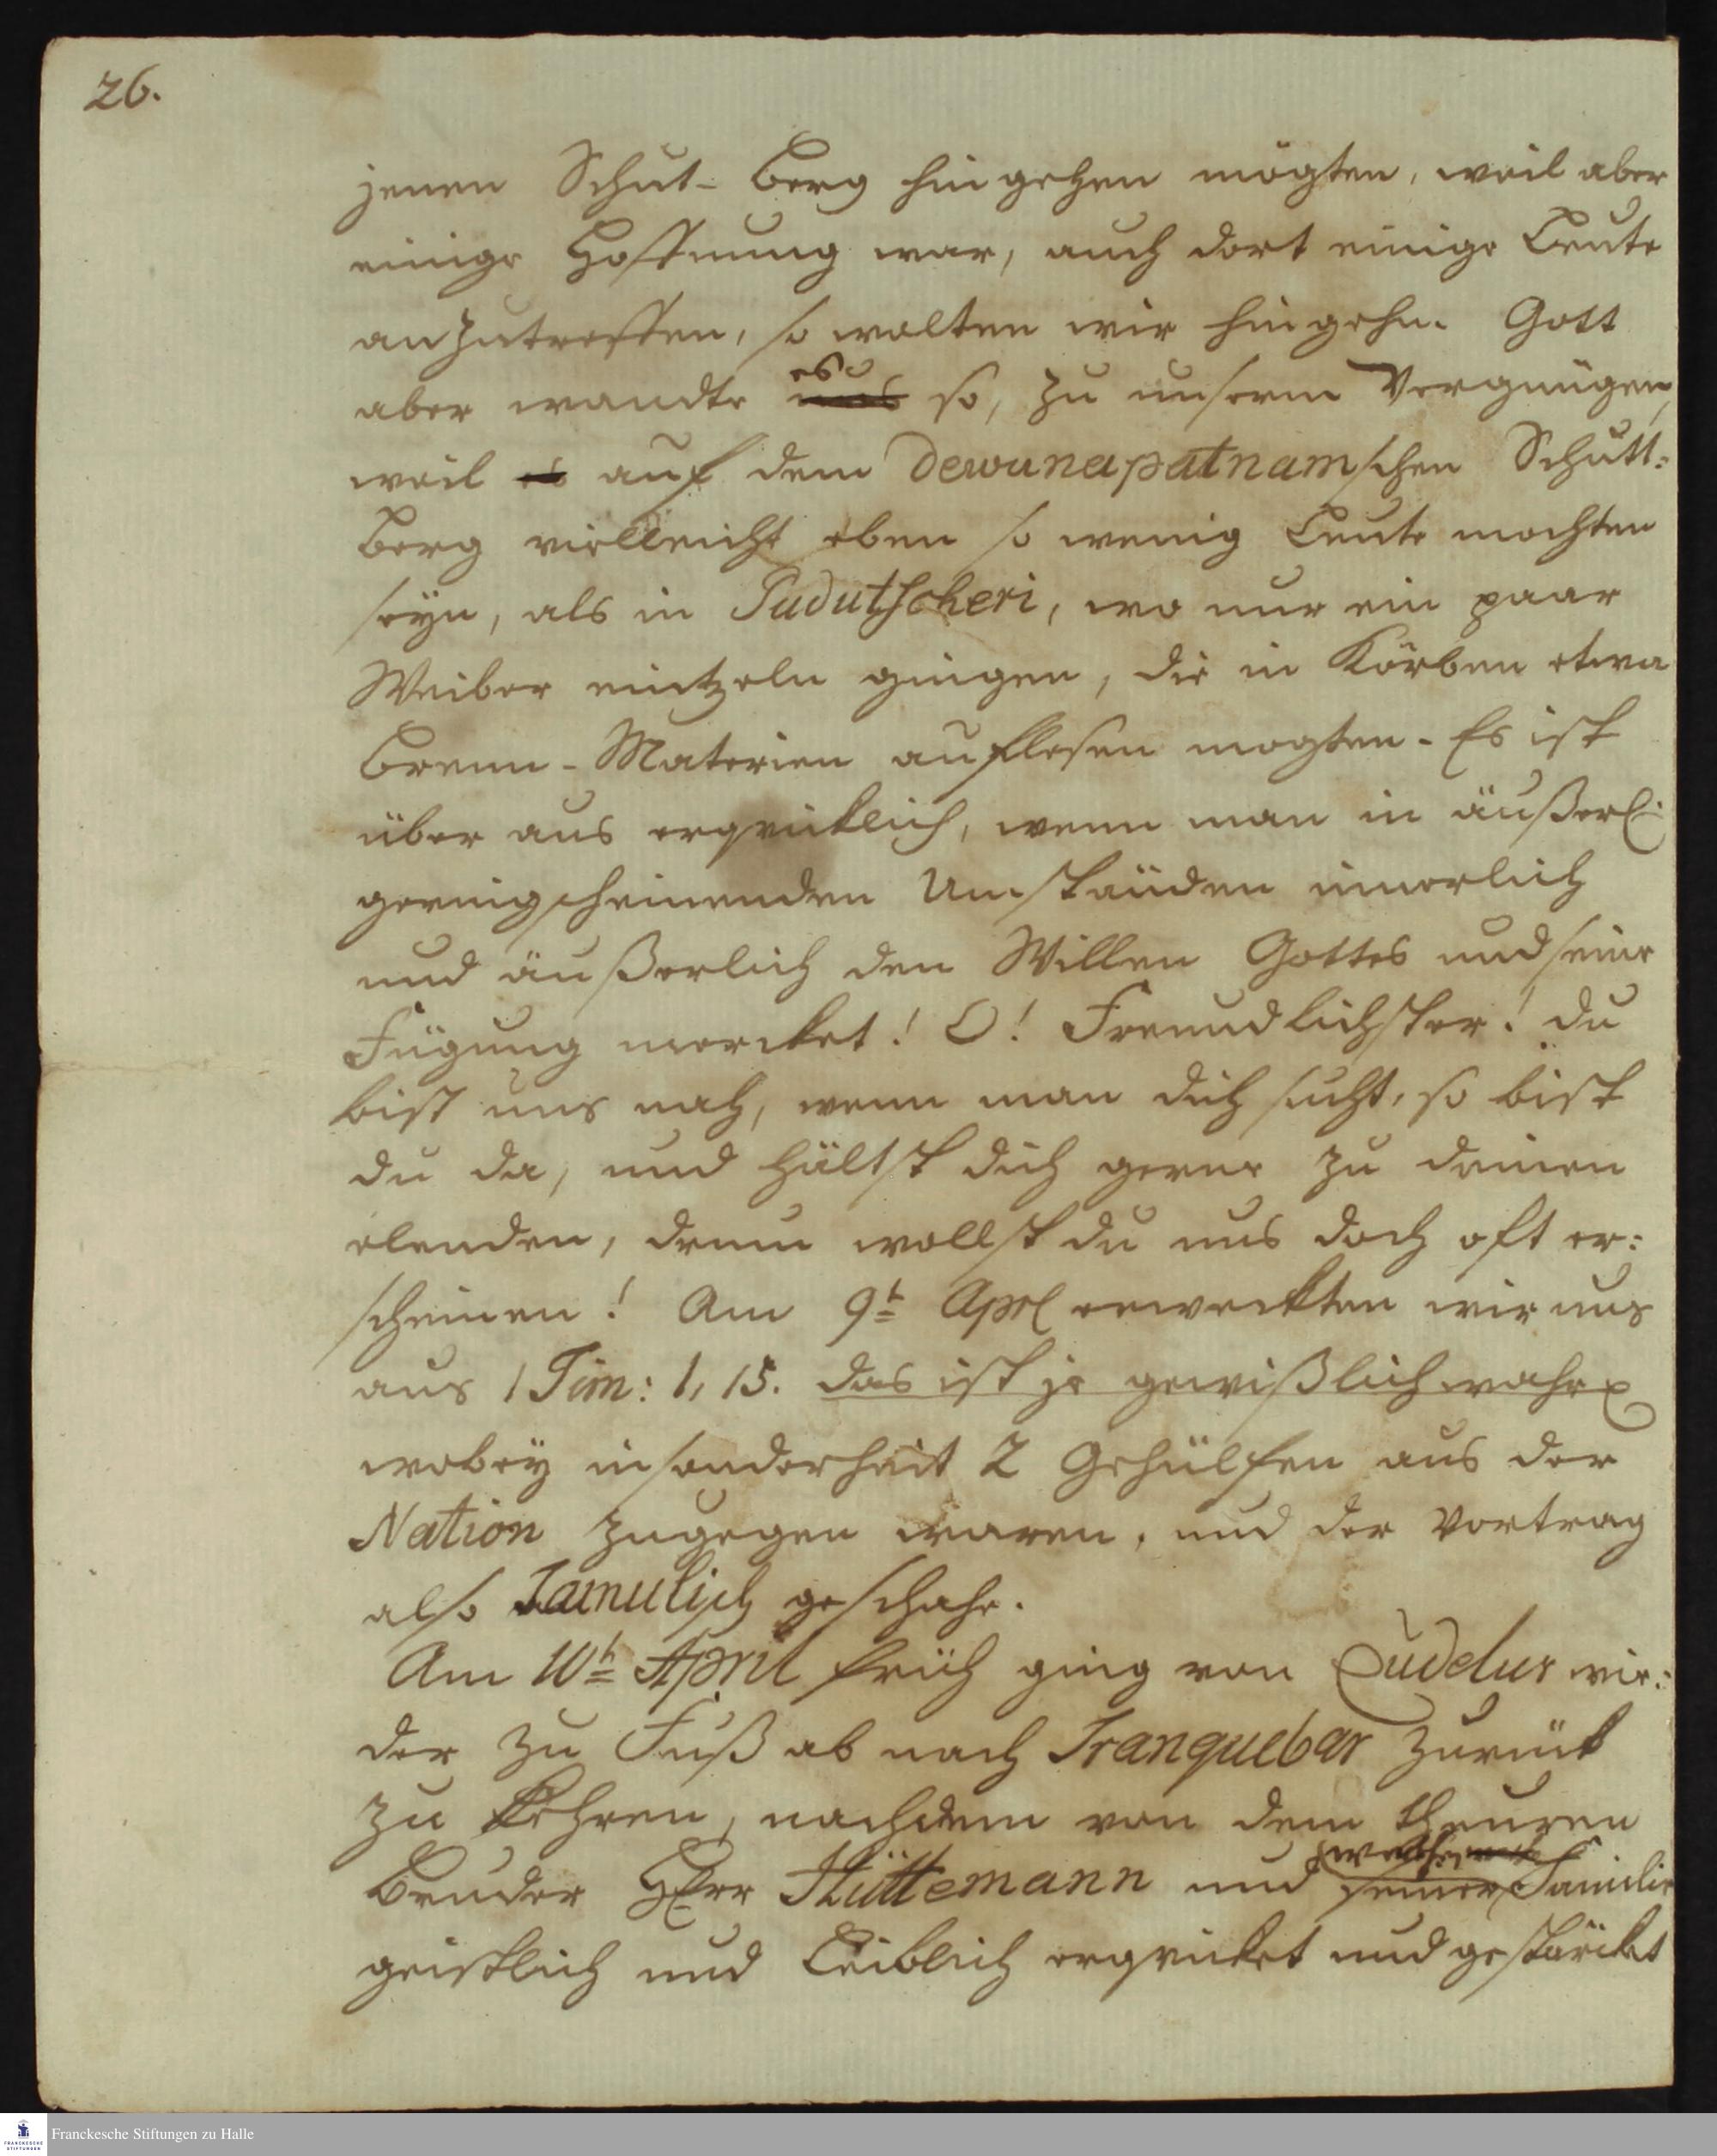 26.
jenen Schut- Berg hingehen mögten, weil aber
einige Hoffnung war, auch dort einige Leute
anzutreffen, so wolten wir hingehn. Gott
aber wandte es uns so, zu unserm Vergnügen,
weil es auf dem Dewunapatnamschen Schutt:
Berg vielleicht eben so wenig Leute mochten
seyn, als in Pudutscheri, wo nur ein paar
Weiber eintzeln gingen, die in Körben etwa
Brenn-Materien auflesen mogten. Es ist
über aus erqviklich, wenn man in äußerl.
geringscheinenden Umständen innerlich
und äußerlich den Willen Gottes und seine
Fügung mercket! O! Freundlichster! du
bist uns nah, wenn man dich sucht, so bist
du da, und hältst dich gerne zu deinen
elenden, drum wollst du uns doch oft er:
scheinen! Am 9t Aprl erweckten wir uns
aus 1 Tim: 1, 15. das ist je gewißlich wahr
wobey insonderheit 2 Gehülfen aus der
Nation zugegen waren, und der Vortrag
also Tamulisch geschahe.
Am 10t April früh ging von Cudelur wie:
der zu Fuß ab nach Tranquebar zurück
zu kehren, nachdem von dem theuren
Bruder HErr Hüttemann und seiner Familie
geistlich und Leiblich erqvicket und gestärcket
Franckesche Stiftungen zu Halle
FRANCKESCHE
STIFTUNGEN